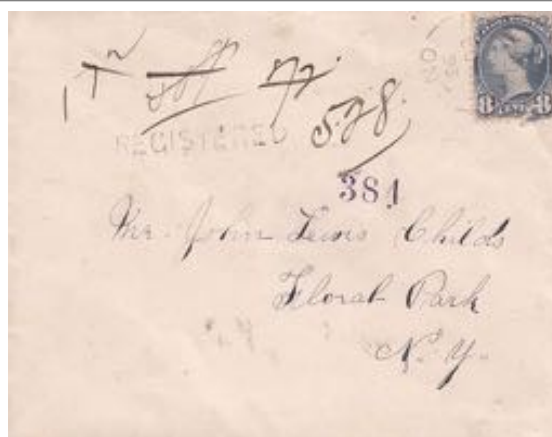 8 CENTS 8
528
REGISTERED
381
Mr. John Lewis Childs
Floral Park
N. Y.